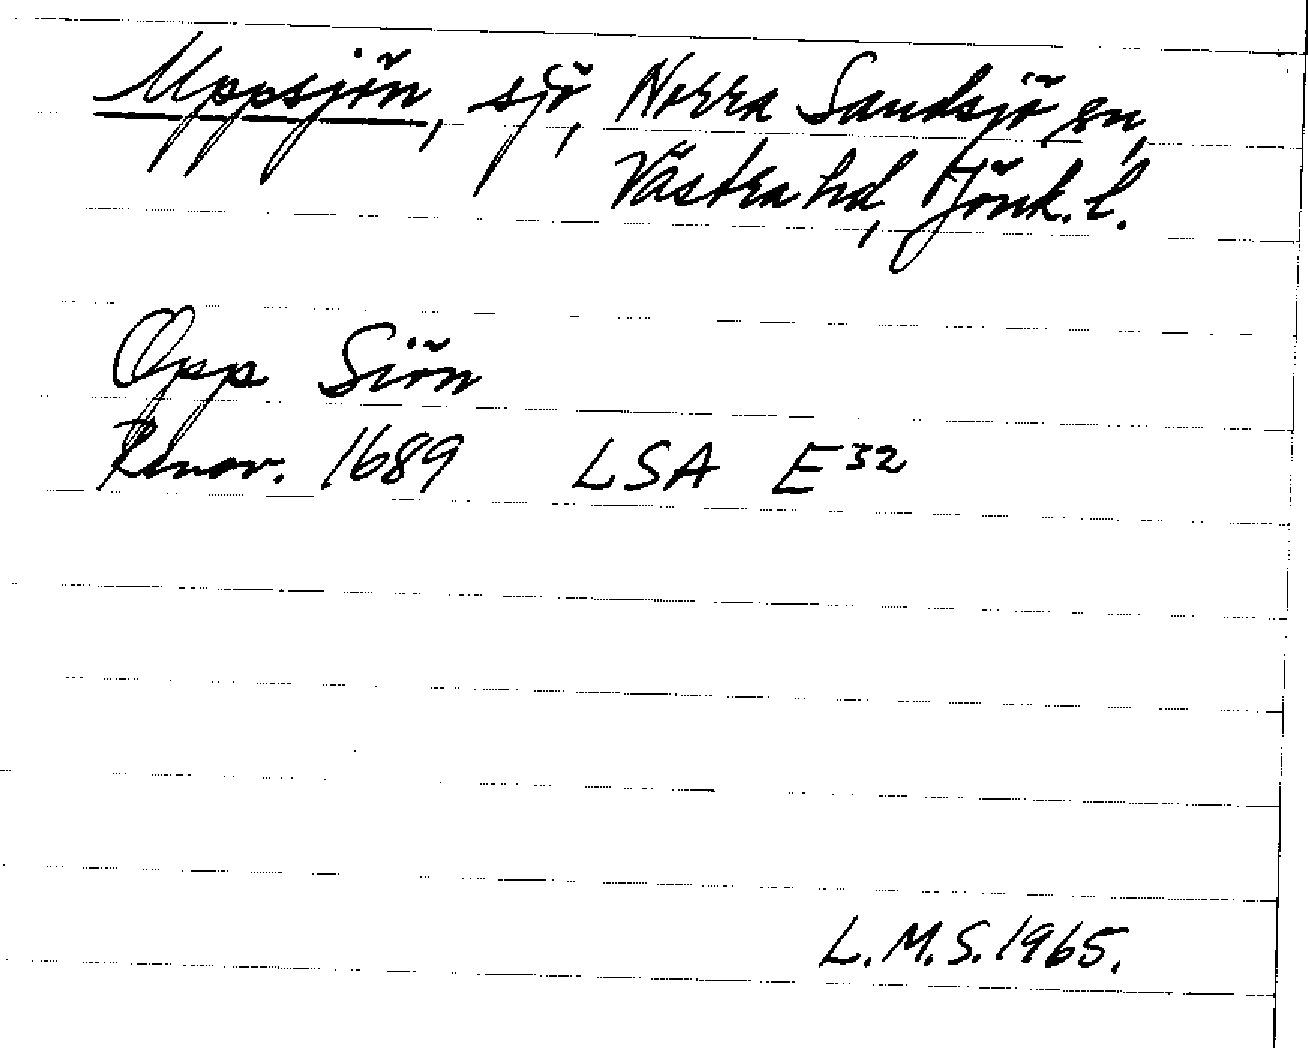 Uppsjön, sjö, Norra Sandsjö sn,
Västra hd, Jönk. l.
Opp Siön
Renov. 1689 LSA E32
L.M.S. 1965.